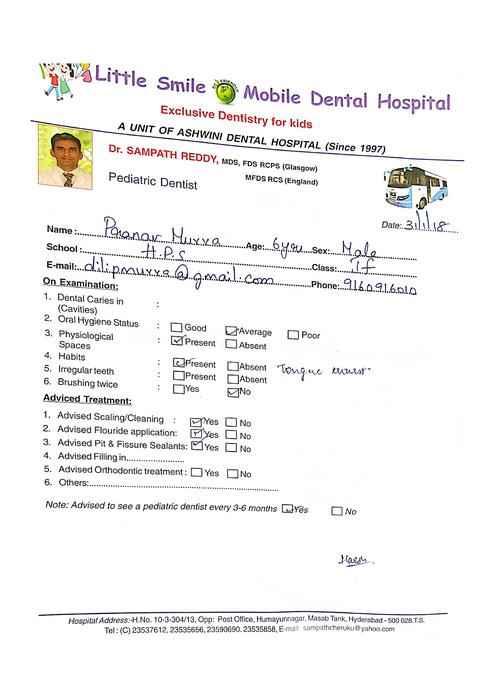 Little Smile Mobile Dental Hospital
Exclusive Dentistry for kids
A UNIT OF ASHWINI DENTAL HOSPITAL (Since 1997)
Dr. SAMPATH REDDY, MDS, FDS RCPS (Glasgow)
MFDS RCS (England)
Pediatric Dentist
Date: 31/1/18
Name: Pranav Murra Age: 6yrs Sex: Male
School: H.P.S Class: If
E-mail: dilipmurra@gmail.com Phone: 9160916010
On Examination:
1. Dental Caries in :
(Cavities)
2. Oral Hygiene Status : Good Average Poor
3. Physiological : Present Absent
Spaces
4. Habits : Present Absent "Tongue
5. Irregular teeth : Present Absent
6. Brushing twice : Yes No
Adviced Treatment:
1. Advised Scaling/Cleaning : Yes No
2. Advised Flouride application: Yes No
3. Advised Pit & Fissure Sealants: Yes No
4. Advised Filling in
5. Advised Orthodontic treatment : Yes No
6. Others:
Note: Advised to see a pediatric dentist every 3-6 months Yes No
Hospital Address:-H.No. 10-3-304/13, Opp: Post Office, Humayunnagar, Masab Tank, Hyderabad - 500 028.T.S.
Tel : (C) 23537612, 23535656, 23590690. 23535858, E-mail sampathcheruku@yahoo.com